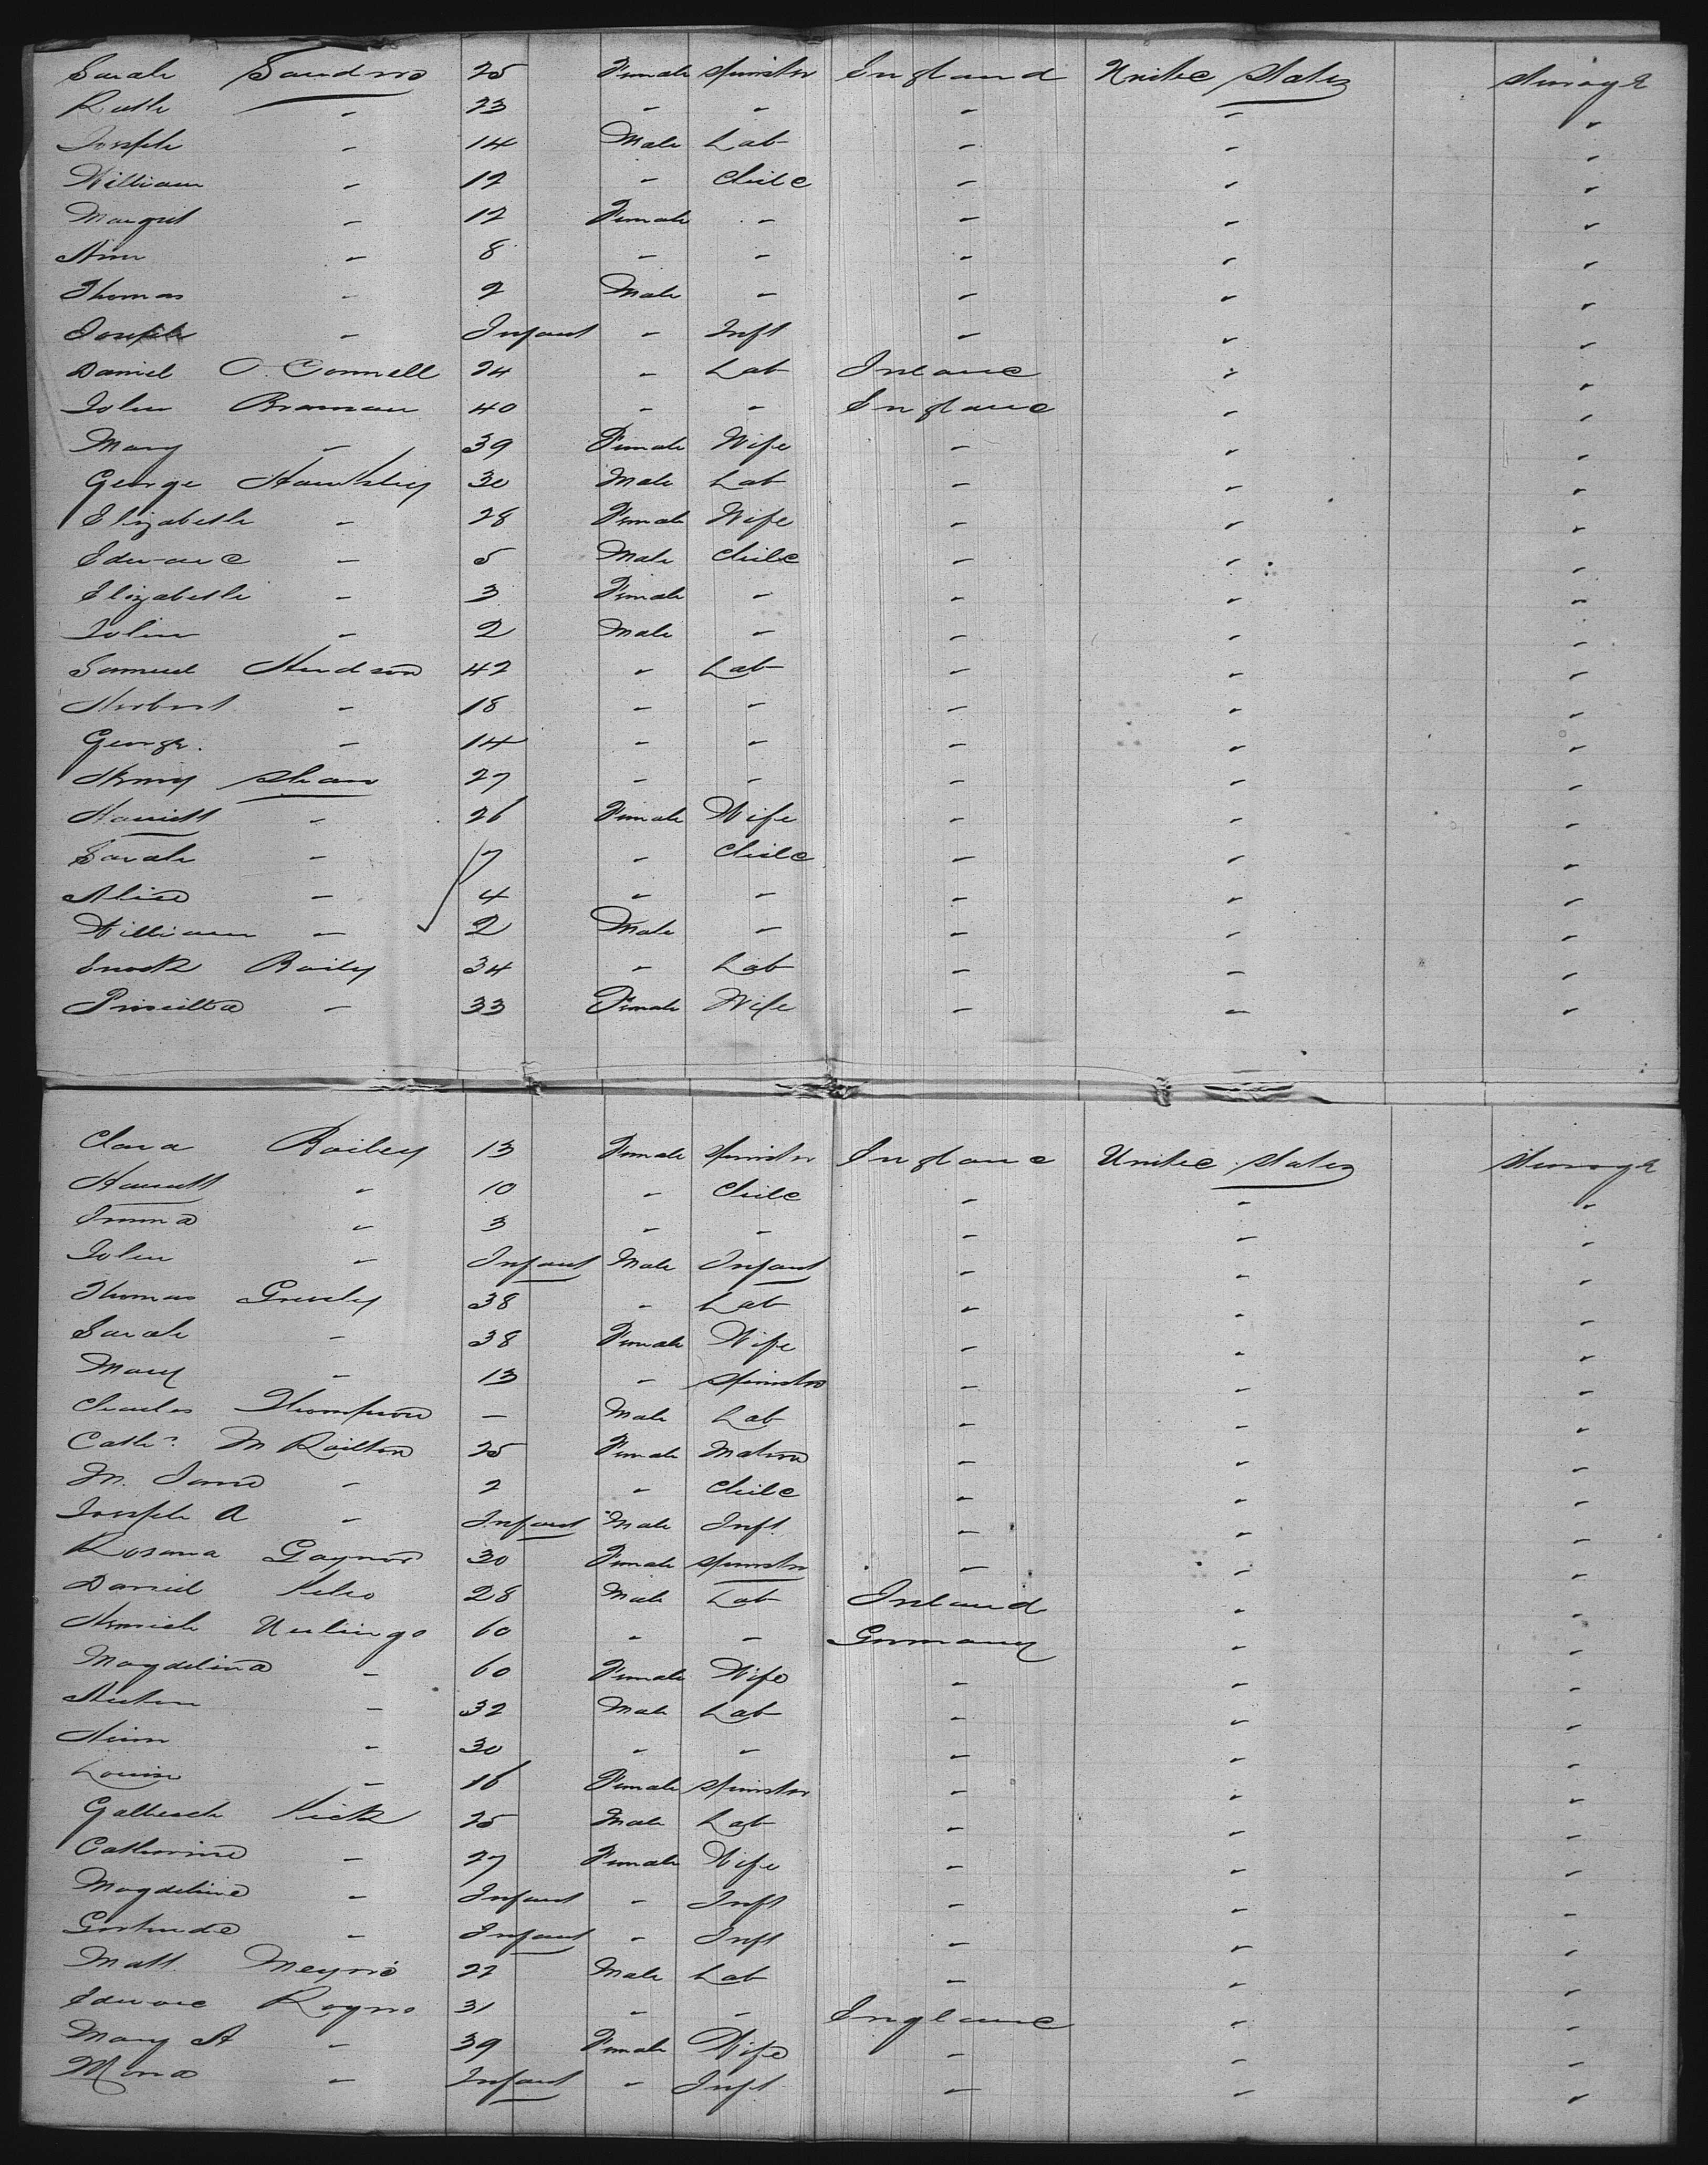 Sarah Sanders 25 Female Spinster England United States Steerage
Ruth " 23 " " " " "
Joseph " 14 Male Lab " " "
William " 12 " Child " " "
Margret " 12 Female " " " "
Ann " 8 " " " " "
Thomas " 2 Male " " " "
Joseph " Infant " Inft " " "
Daniel O. Connell 24 " Lab Ireland " "
John Braman 40 " " England " "
Mary " 39 Female Wife " " "
George Hawksley 30 Male Lab " " "
Elizabeth " 28 Female Wife " " "
Edward " 5 Male Child " " "
Elizabeth " 3 Female " " " "
John " 2 Male " " " "
Samuel Hudson 42 " Lab " " "
Herbert " 18 " " " " "
George " 14 " " " " "
Henry Shaw 27 " " " " "
Harriett " 26 Female Wife " " "
Sarah " 7 " Child " " "
Alice " 4 " " " " "
William " 2 Male " " " "
Enock Baily 34 " Lab " " "
Priscilla " 33 Female Wife " " "
Clara Bailey 13 Female Spinster England United States Steerage
Harriett " 10 " Child " " "
Emma " 3 " " " " "
John " Infant Male Infant " " "
Thomas 38 " Lab " " "
Sarah " 38 Female Wife " " "
Mary " 13 " Spinster " " "
Charles Thompson — Male Lab " " "
Cathe. M Railton 25 Female Matron " " "
M. Jane " 2 " Child " " "
Joseph A " Infant Male Inft " " "
Rosana Gaynor 30 Female Spinster " " "
Daniel 28 Male Lab Ireland " "
60 " " Germany " "
Magdelina " 60 Female Wife " " "
" 32 Male Lab " " "
" 30 " " " " "
Louise " 16 Female Spinster " " "
Kick 25 Male Lab " " "
Catherine " 27 Female Wife " " "
Magdeline " Infant " Inft " " "
Gertrude " Infant " Inft " " "
Matt 22 Male Lab " " "
Edward 31 " " England " "
Mary A " 39 Female Wife " " "
" Infant " Inft " " "